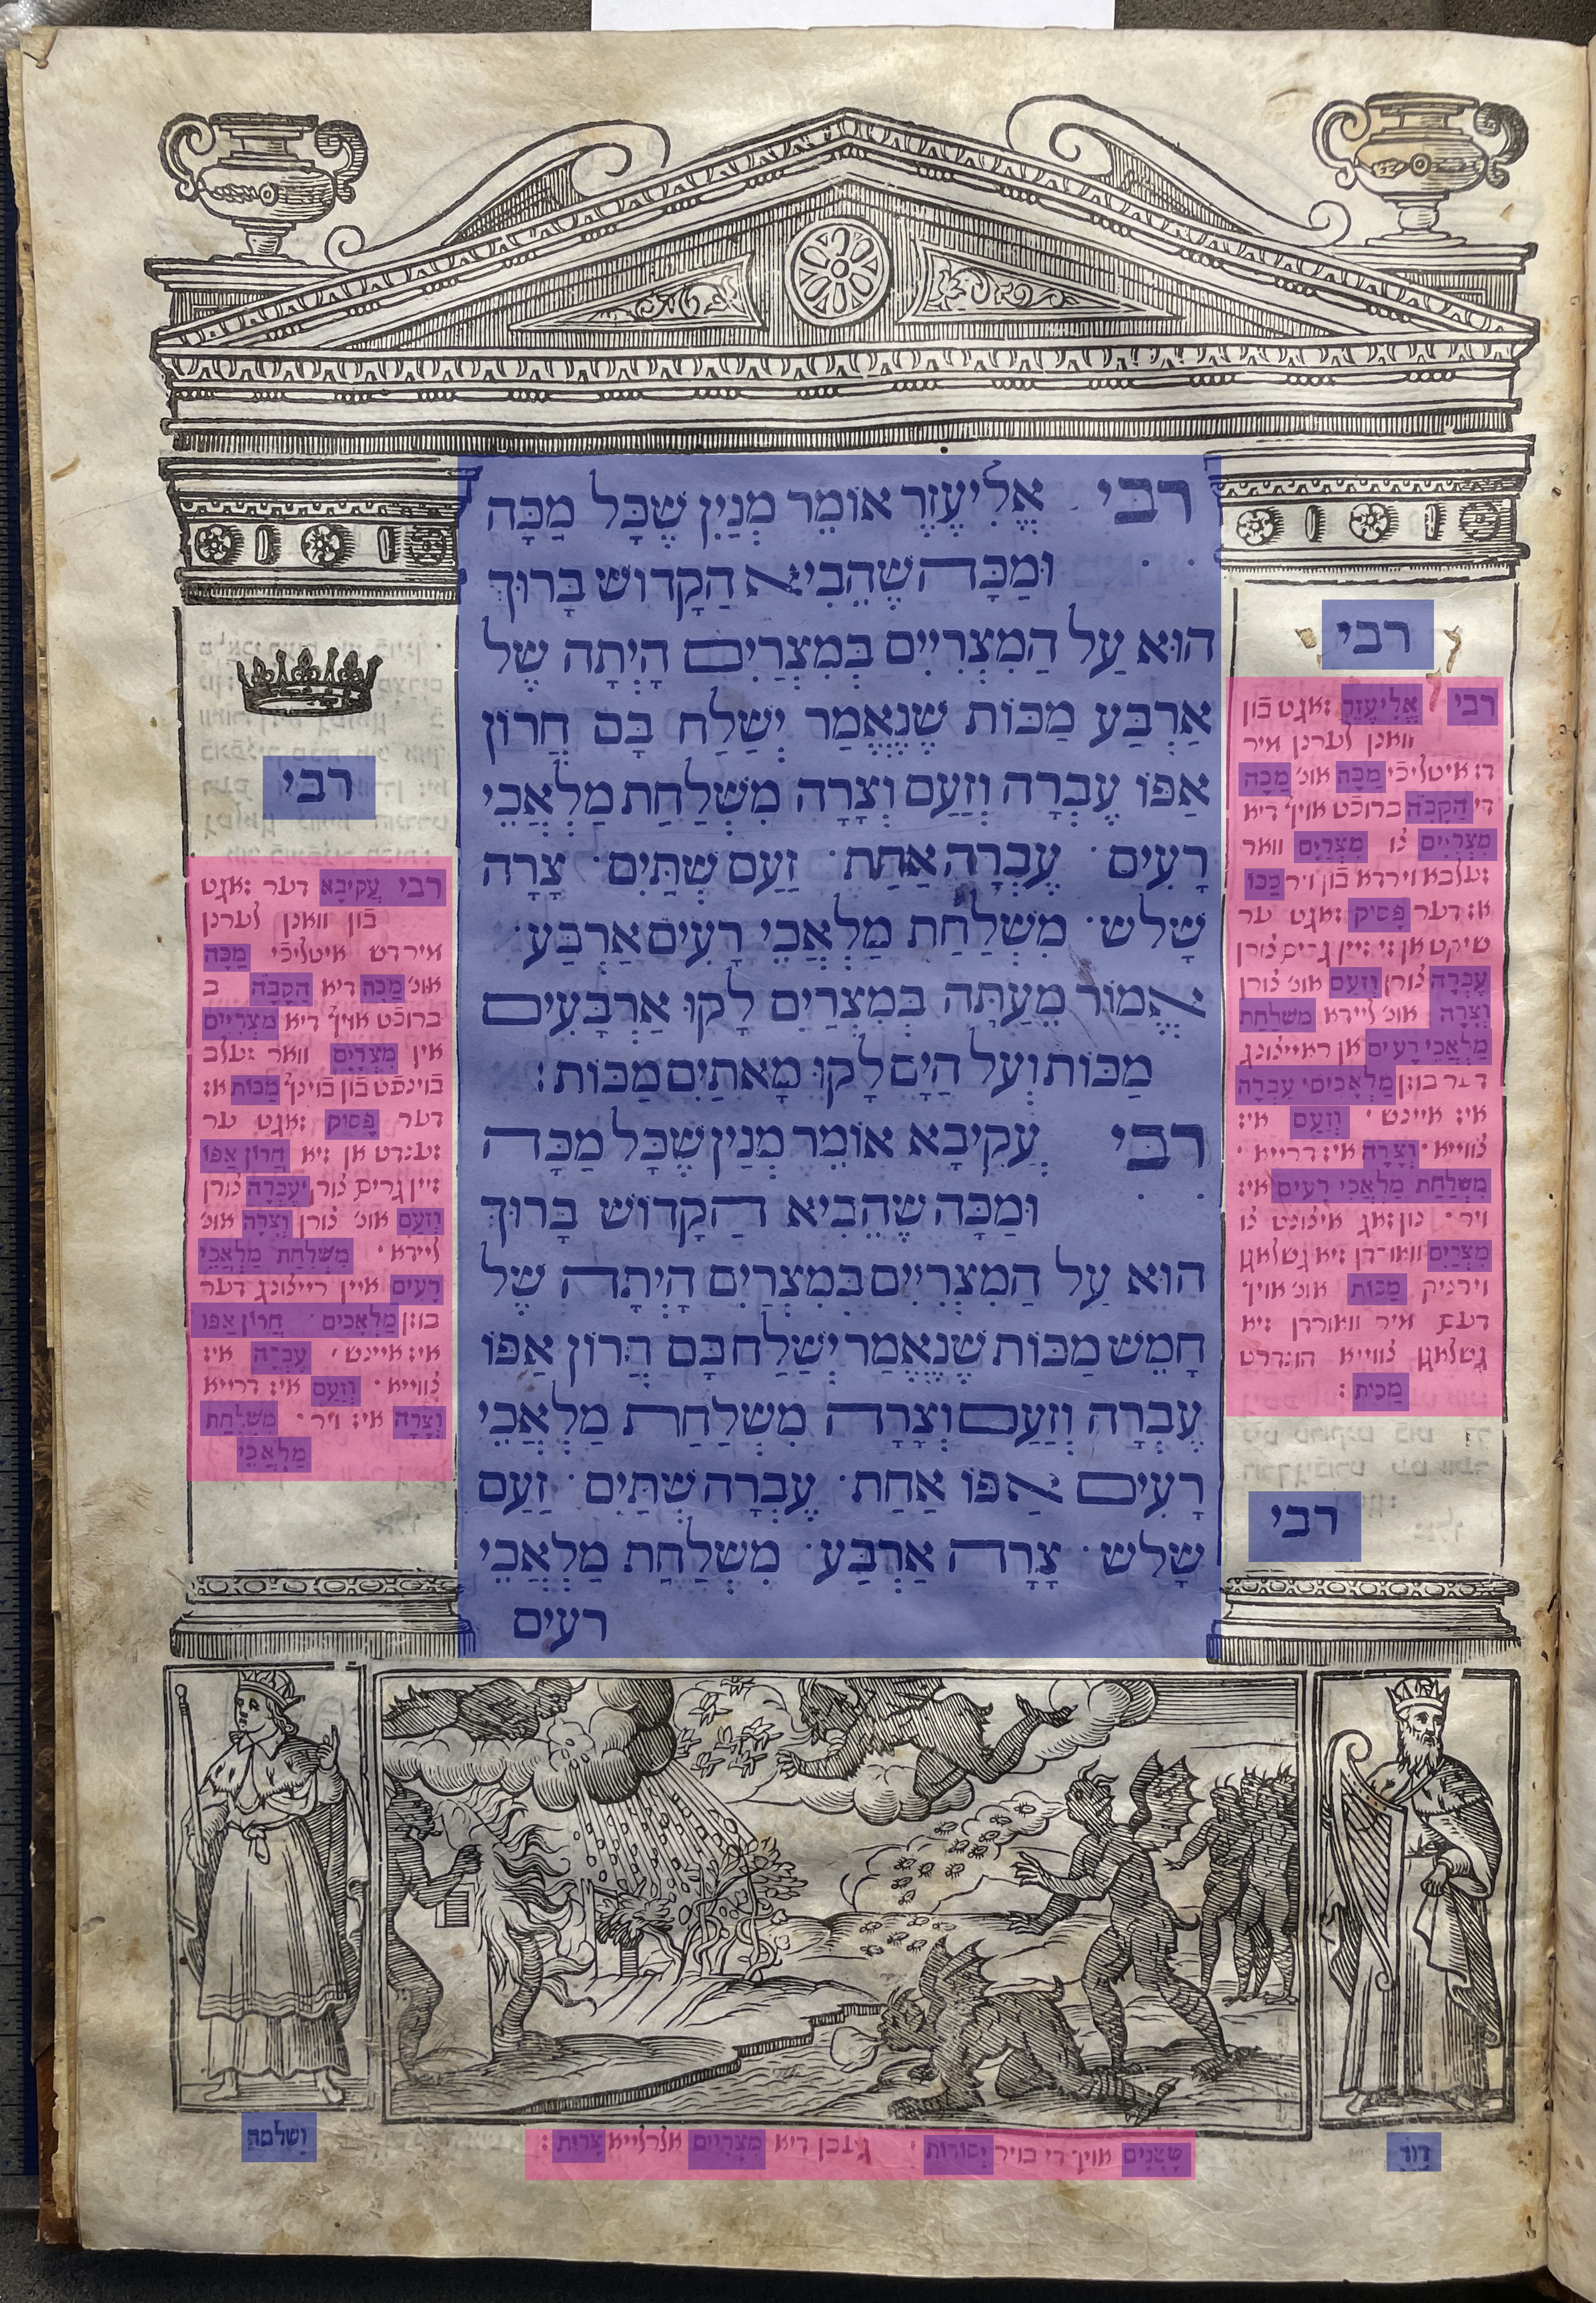 רבי אֱלִיעֶזֶר אוֹמֵר מְנַיִן שֶׁכָּל מַכָּה
וּמַכָּה שֶׁהֵבִיא הַקָדוֹשׁ בָּרוּךְ
הוּא עַל הַמִצְרִיִים בְּמִצְרַיִם הָיְתָה שֶׁל
אַרְבַּע מַכּוֹת שֶׁנֶאֱמַר יְשַׁלַח בָּם חֲרוֹן
אַפּוֹ עֶבְרָה וְזַעַם וְצָרָה מִשְׁלַחַת מַלְאֲכֵי
רָעִים · עֶבְרָה אַחַת · זַעַם שְׁתַּיִם · צָרָה
שָׁלשׁ · מִשְׁלַחַת מַלְאֲכֵי רָעִים אַרְבַּע ·
אֱמוֹר מֵעַתָּה בְּמִצְרַיִם לָקוּ אַרְבָּעִים
מַכּוֹת וְעַל הַיָם לָקוּ מָאתַיִם מַכּוֹת :
רבי עֲקִיבָא אוֹמֵר מְנַיִן שֶׁכָּל מַכָּה
וּמַכָּה שֶׁהֵבִיא הַקָדוֹשׁ בָּרוּךְ
הוּא עַל הַמִצְרִיִים בְּמִצְרַיִם הָיְתָה שֶׁל
חָמֵשׁ מַכּוֹת שֶׁנֶאֱמַר יְשַׁלַח בָּם חֲרוֹן אַפּוֹ
עֶבְרָה וְזַעַם וְצָרָה מִשְׁלַחַת מַלְאֲכֵי
רָעִים אַפּוֹ אַחַת · עֶבְרָה שְׁתַּיִם · זַעַם
שָׁלשׁ · צָרָה אַרְבַּע · מִשְׁלַחַת מַלְאֲכֵי
רעים
רבי
רבי אֱלִיעֶזֶר זאגט בֿון
וואנן לערנן מיר
דז איטליכֿי מַכָּה אונ' מַכָּה
די הַקָבָּה ברוכֿט אויף דיא
מִצְרִיִים צו מִצְרַיִם וואר
זעלבא וירדא בֿון ויר מַכּוֹ
אז דער פָּסוּק זאגט ער
שיקט אן זי זיין גרים צורן
עֶבְרָה צורן וָזַעַם אונ' צורן
וְצָרָה אונ' ליידא מִשְׁלַחַת
מַלְאֲכֵי רָעִים אן ראייצונג
דער בוזן מַלְאָכִים · עֶבְרָה
איז איינש · וָזַעַם איז
צווייא · וְצָרָה איז דרייא ·
מִשְׁלַחַת מַלְאֲכֵי רָעִים איז
ויר · נון זאג איצונט צו
מִצְרַיִם ווארדן זיא גשלאגן
וירציק מַכּוֹת אונ' אויף
דעם מיר וואורדן זיא
גשלאגן צווייא הונדרט
מַכּוֹת :
רבי
רבי
רבי עֲקִיבָא דער זאגט
בֿון וואנן לערנן
מיר דש איטליכֿי מַכָּה
אונ' מַכָּה דיא הַקָבָּה ב
ברוכֿט אויף דיא מִצְרִיִים
אין מִצְרַיִם וואר זעלב
בֿוינפֿט בֿון בֿוינף מַכּוֹת אז
דער פָּסוּק זאגט ער
זענדט אן זיא חֲרוֹן אַפּוֹ
זיין גרים צורן עֶבְרָה צורן
וָזַעַם אונ' צורן וְצָרָה אונ'
ליידא · מִשְׁלַחַת מַלְאֲכֵי
רָעִים איין רייצונג דער
בוזן מַלְאָכִים · חֲרוֹן אַפּוֹ
איז איינש · עֶבְרָה איז
צווייא · וָזַעַם איז דרייא
וְצָרָה איז ויר · מִשְׁלַחַת
מַלְאֲכֵי
דָוִד
יִסוּרוֹת · גיבן דיא מִצְרִיִים אלרלייא צָרוֹת :
ושלמה